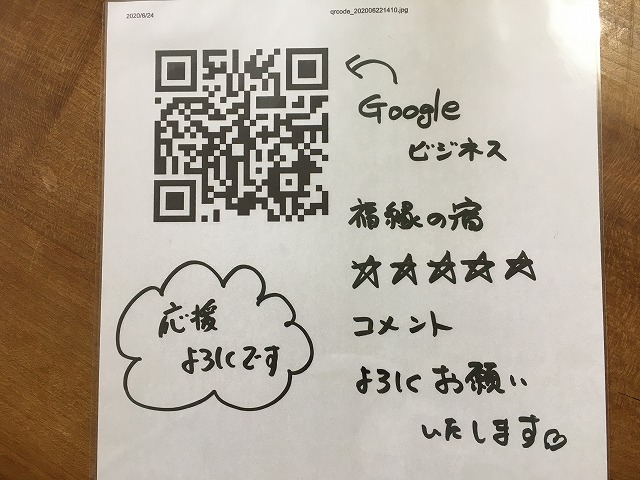 2020/6/24
qrcode_202006221410.jpg
Google
ビジネス
福縁の宿
☆☆☆☆☆
コメント
よろしくお願い
いたします♡
応援
よろしくです